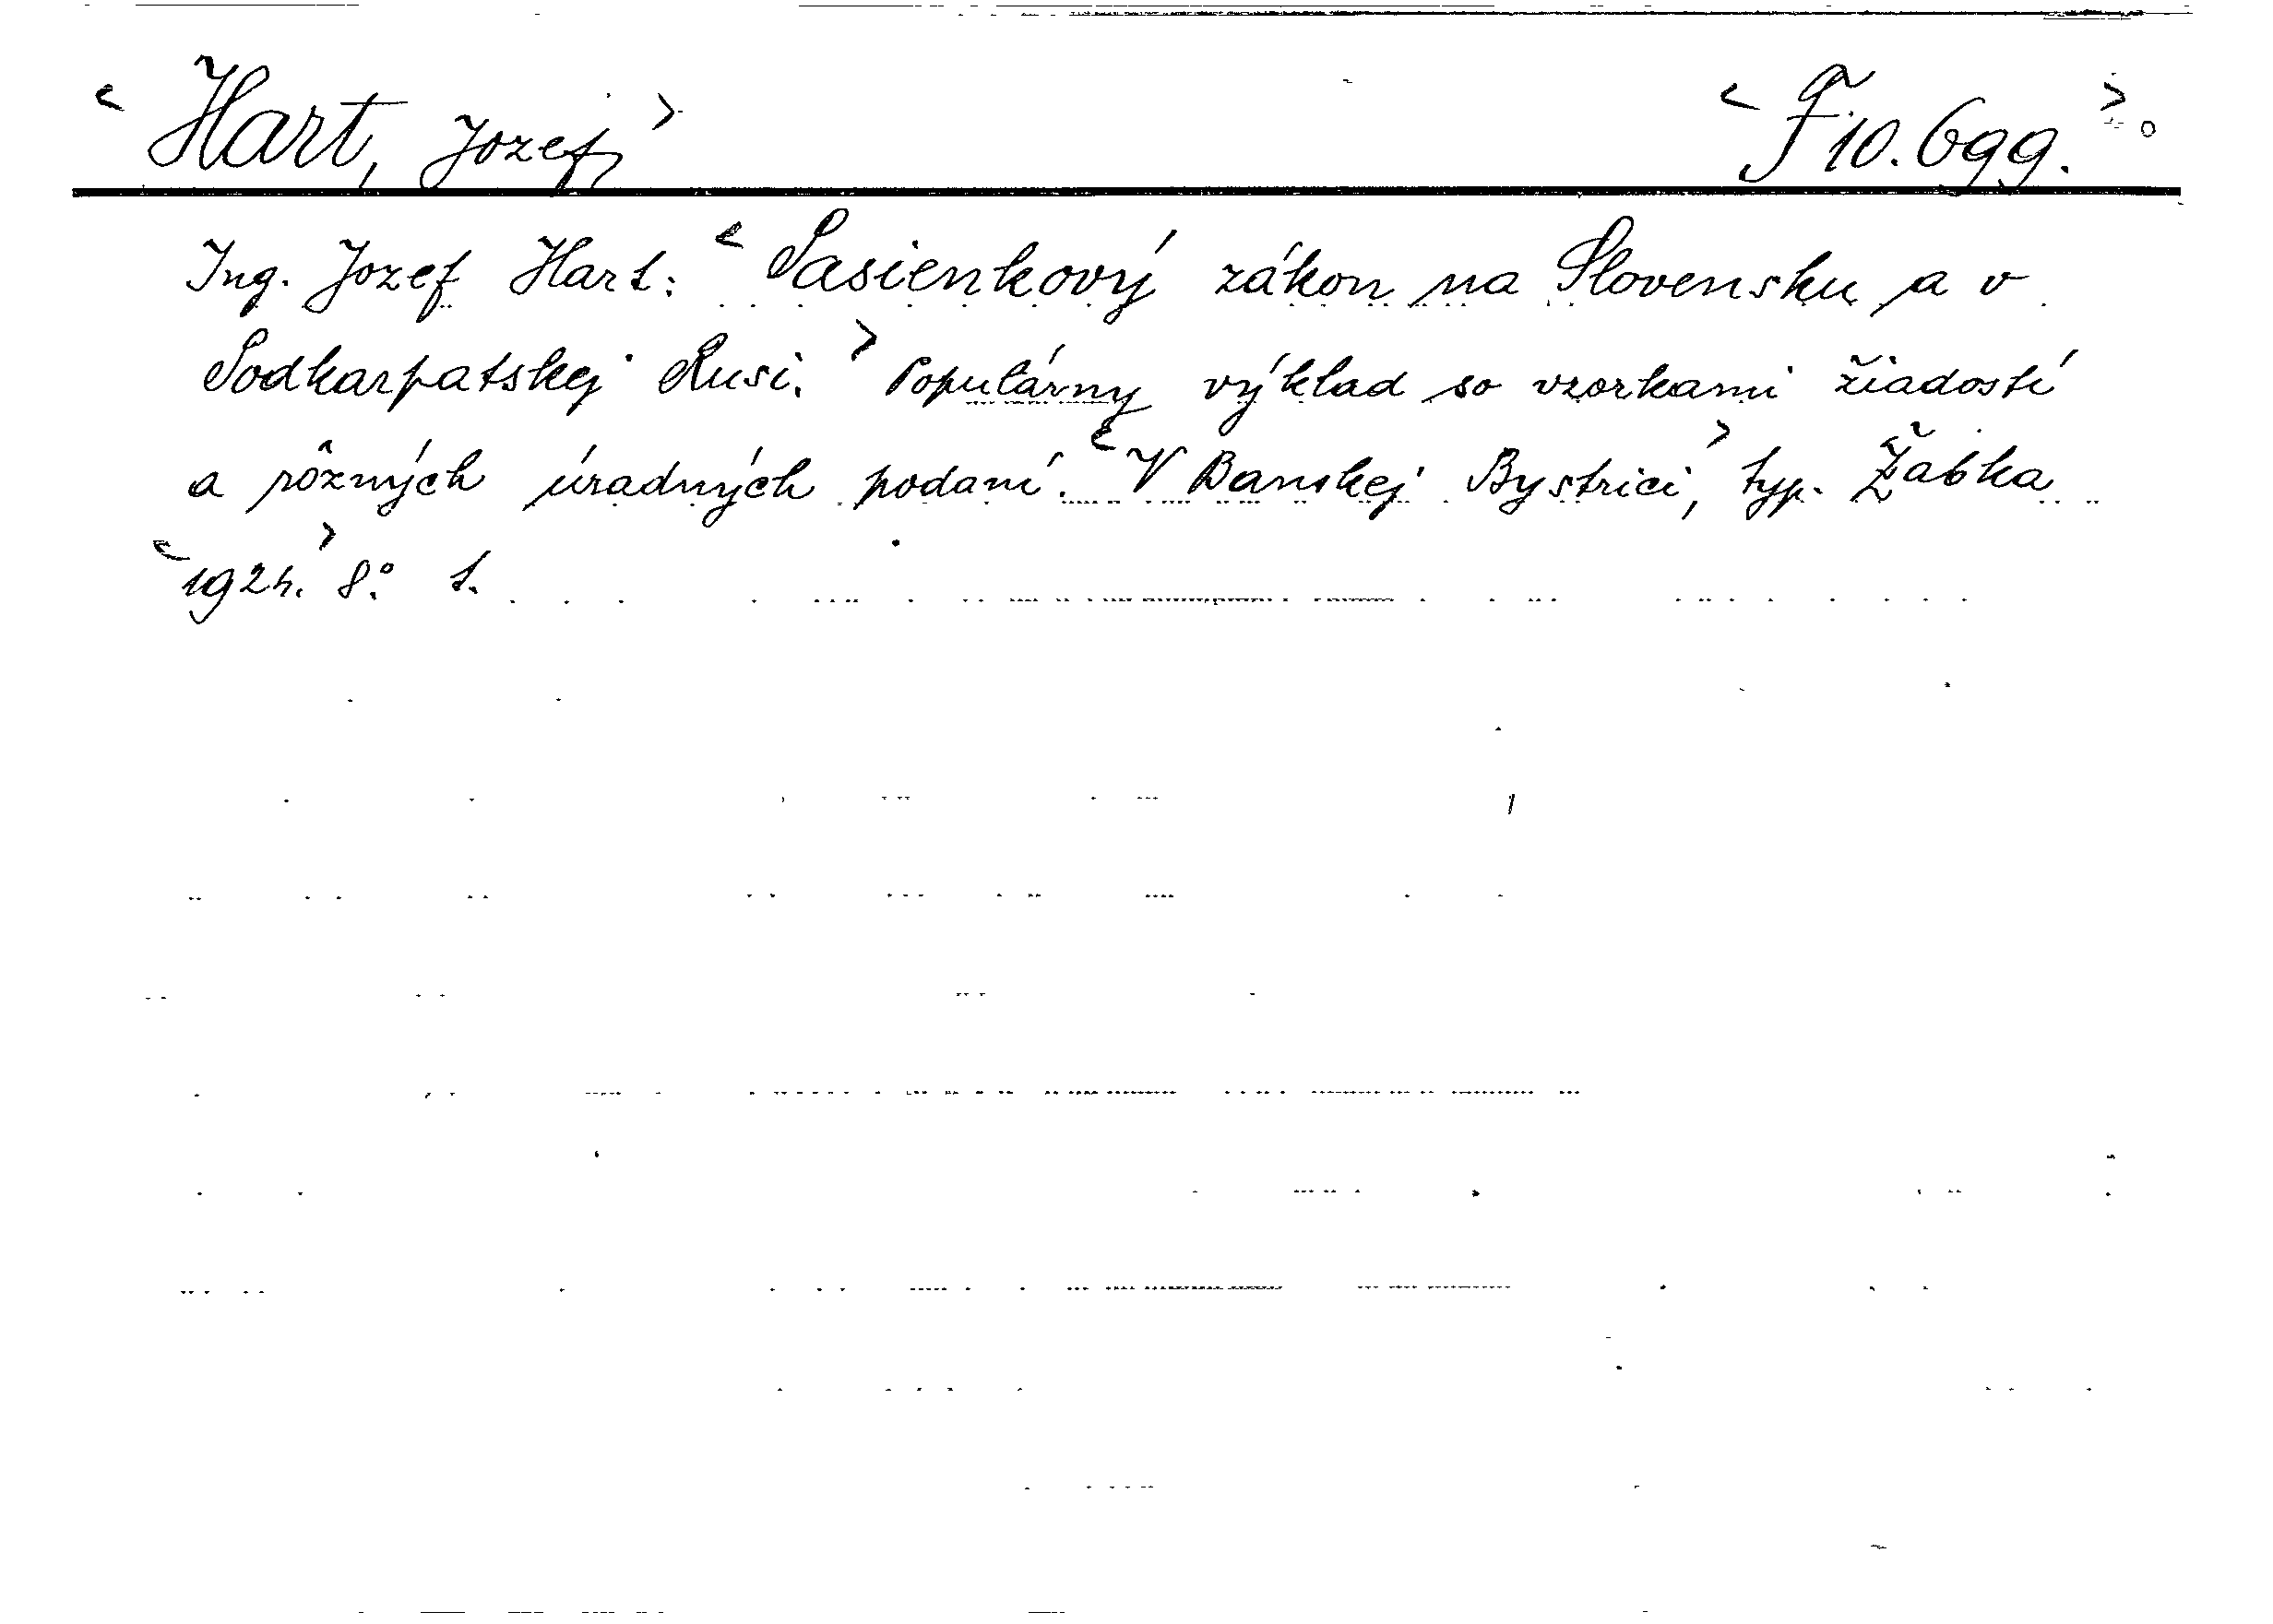 < Hart, Jozef >
< F 10.699. >
Ing. Jozef Hart: < Pasienkový zákon na Slovensku a v
Podkarpatskej Rusi. > Populárny výklad so vzorkami žiadostí
a rôzných úradných podaní. < V Banskej Bystrici, > typ. Žabka
< 1924. > 8.° 1.